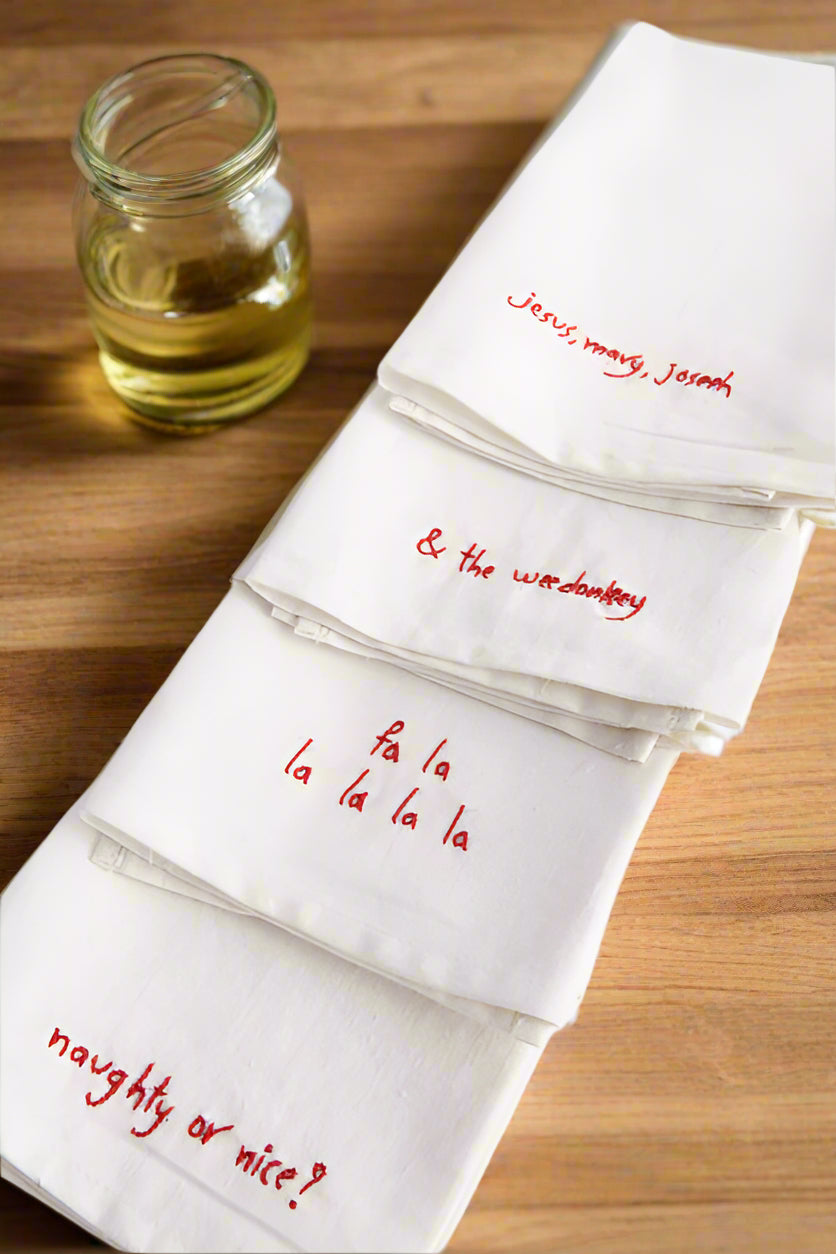 jesus, mary, joseph
& the wee donkey
fa la
la la la la
naughty or nice?